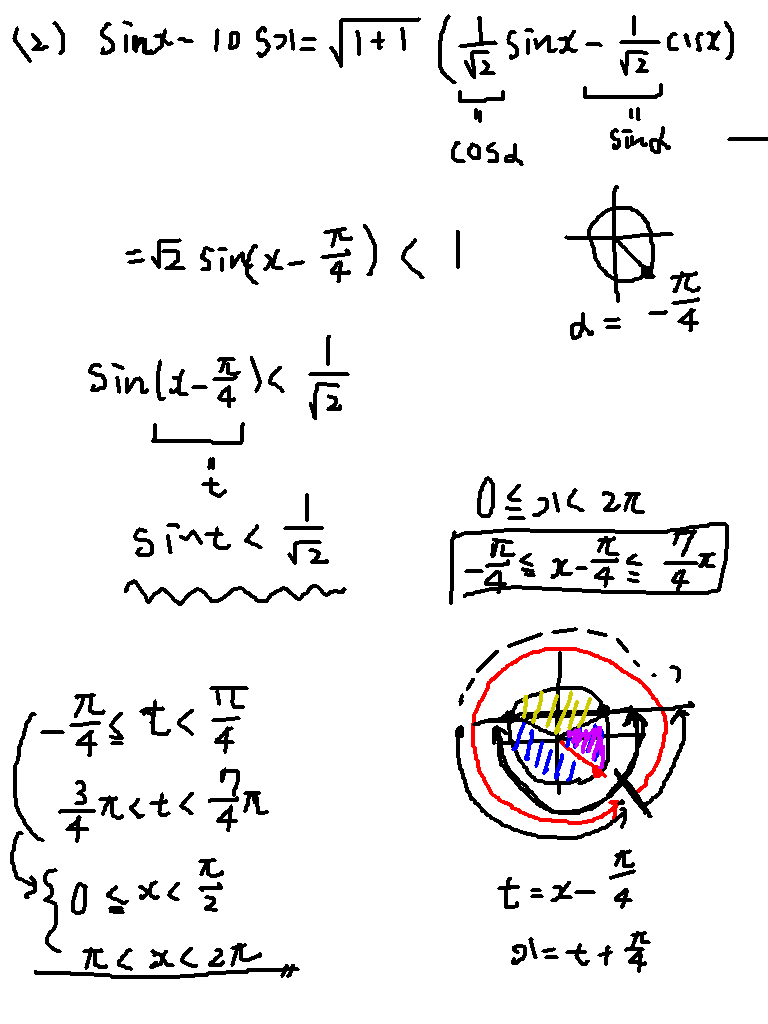 (2) sinx - 10 sx = √1+1 (1/√2 sinx - 1/√2 cosx)
" cosα
" sinα
= √2 sin(x - π/4) < 1
α = -π/4
sin(x - π/4) < 1/√2
" t
sint < 1/√2
0 ≦ x < 2π
-π/4 ≦ x - π/4 ≦ 7/4 π
-π/4 ≦ t < π/4
3/4 π < t < 7/4 π
0 ≦ x < π/2
π < x < 2π
t = x - π/4
x = t + π/4